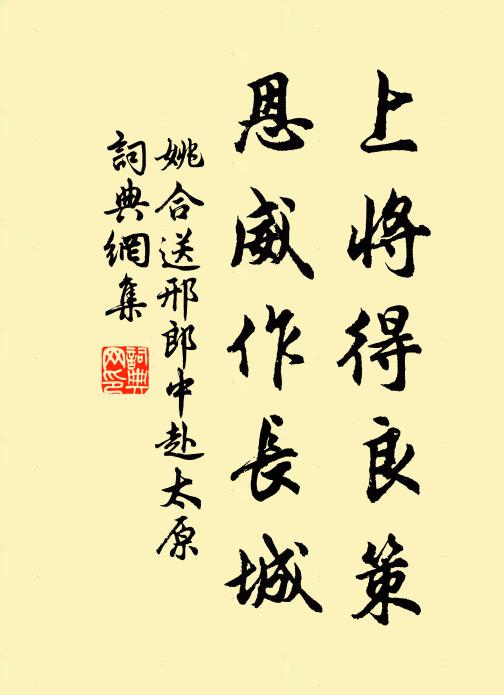 上將得良策
恩威作長城
姚合送邢郎中赴太原
詞典網集
詞典
网印